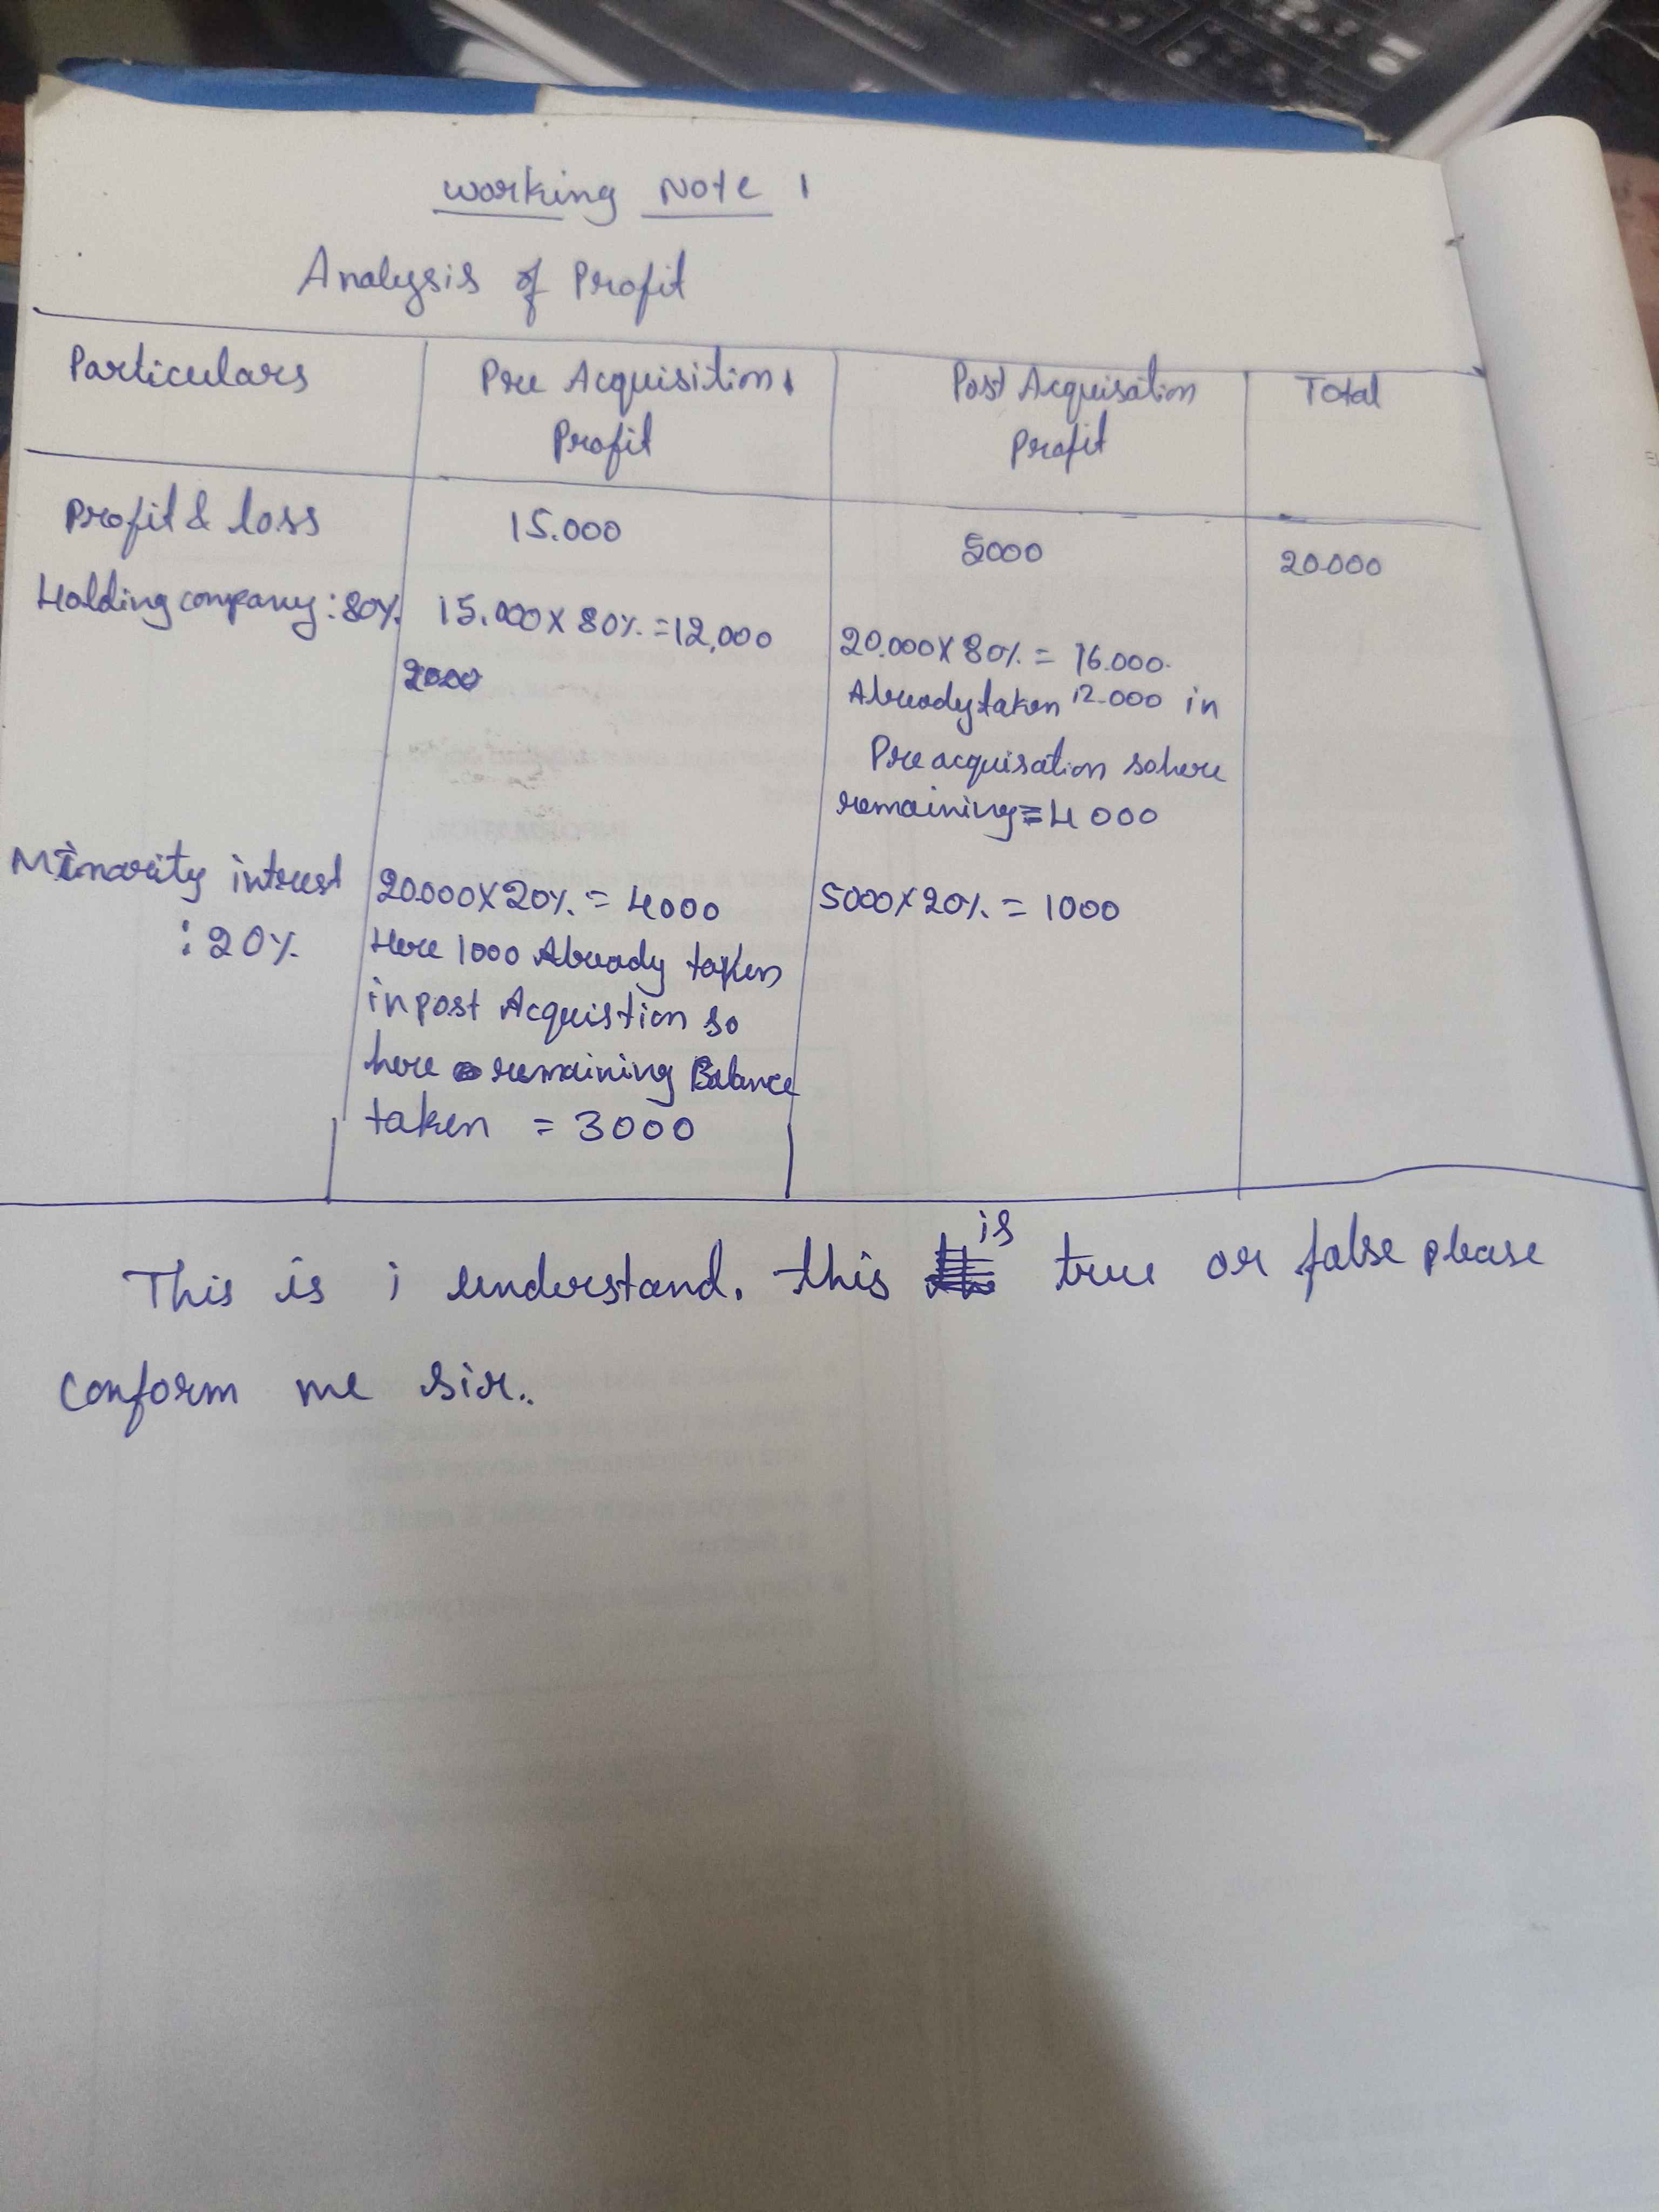 Working Note 1
Analysis of Profit
Particulars
Pre Acquisition
Profit
Post Acquisation
Profit
Total
Profit & loss
15.000
5000
20.000
Holding company : 80%
15.000 X 80% = 12,000
2000
20.000 X 80% = 16.000.
Already taken 12.000 in
Pre acquisation so here
remaining = 4000
Minority intrest
: 20%
20.000 X 20% = 4000
Here 1000 Already taken
in post Acquistion so
here remaining Balance
taken = 3000
5000 X 20% = 1000
This is i understand. this is true or false please
conform me sir..